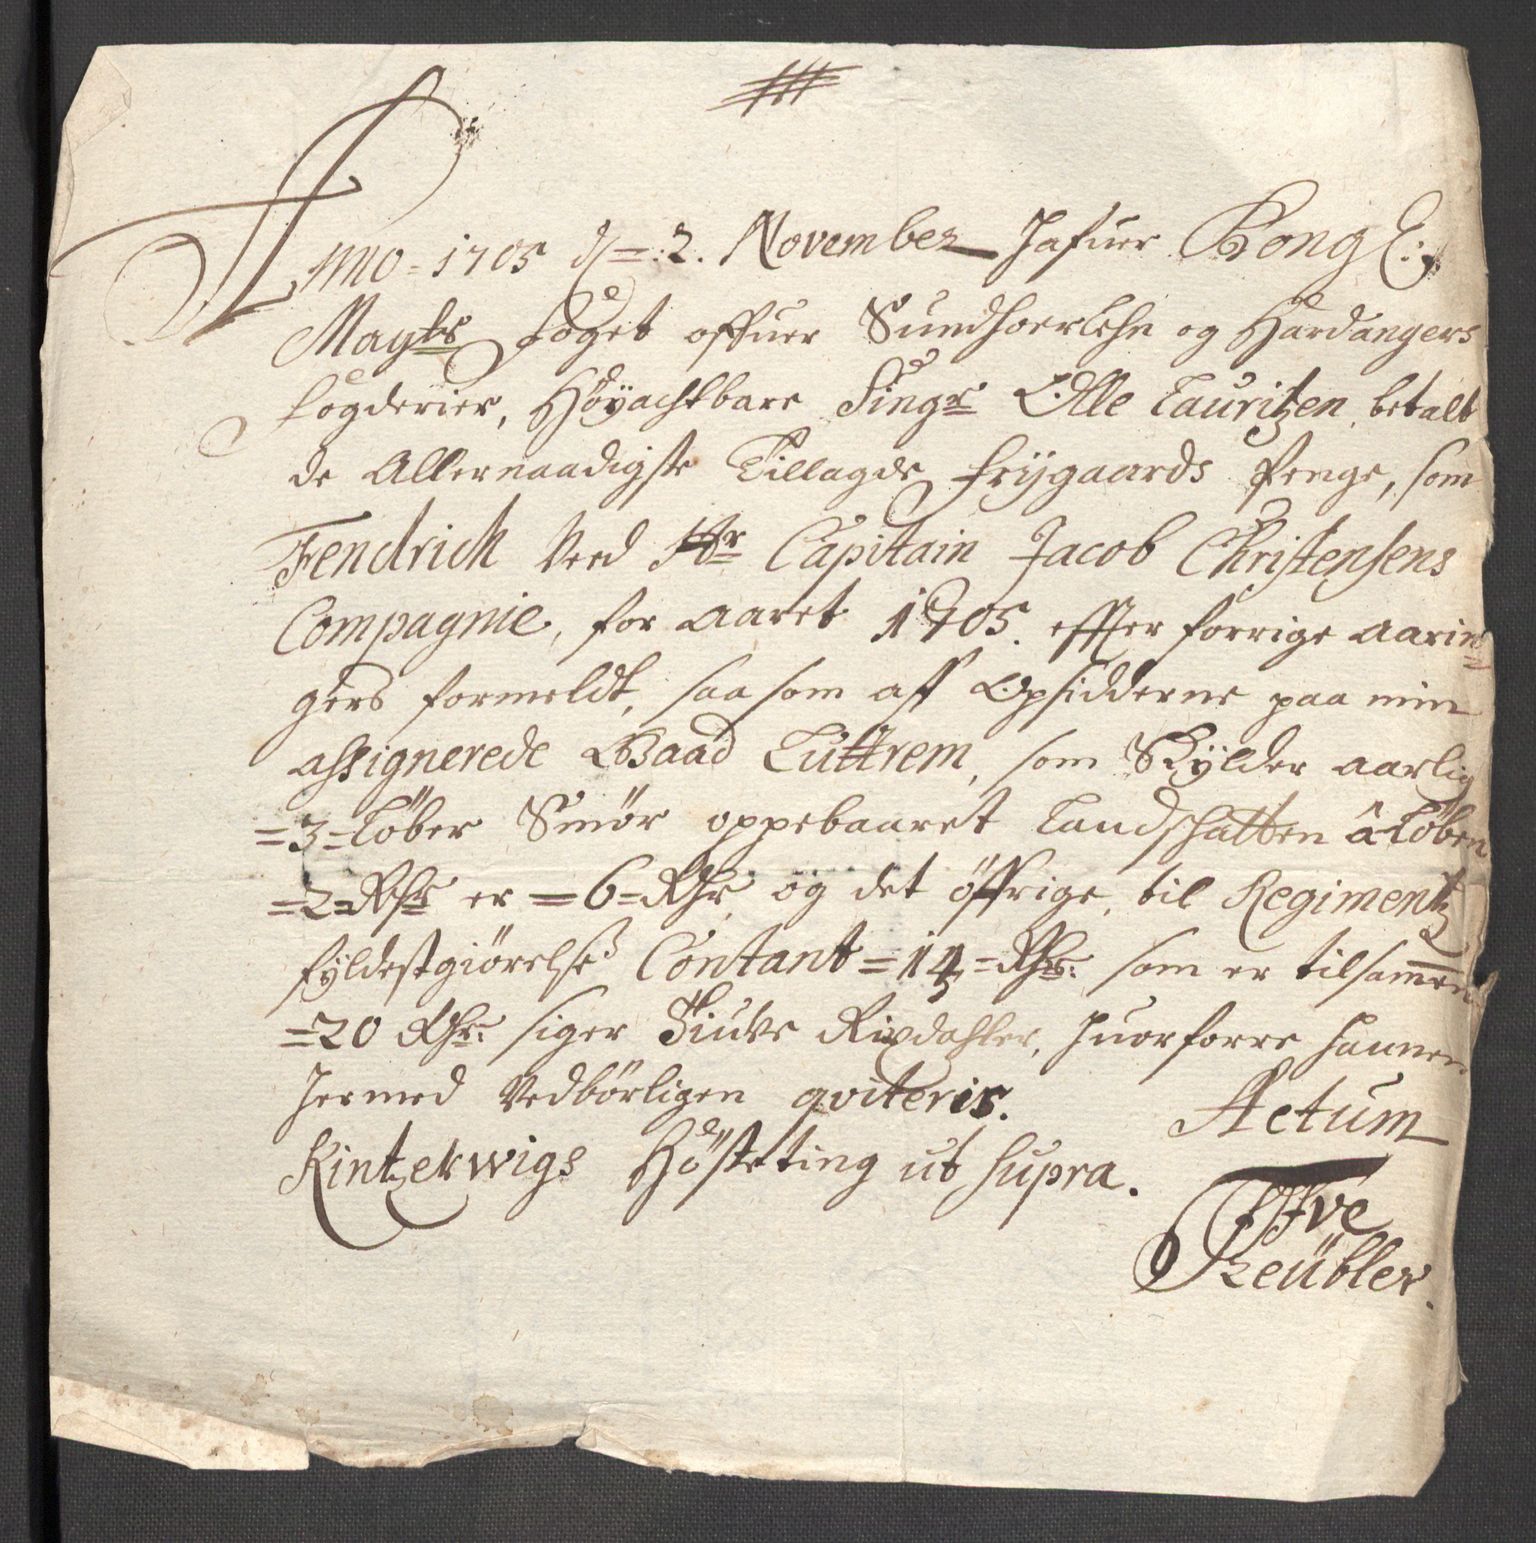 Anno = 1705 d = 2. November Hafuer Kongl:
Mayts Foget offuer Sundhoerlehn og Hardangers
Fogderier, Höyachtbare Singr Olle Lauritzen, betalt
de Allernaadigste Tillagde Frÿgaards Penge, som
Fendrich Ved Hr Capitain Jacob Christensens
Compagnie, for Aaret 1705. effter forrige Aarin
gers formeldt, saa som aff Opsidderne paa min
assignerede Gaad Luttrem, som Skÿlder aarlig
= 3 = Löber Smör oppebaaret Landschatten â Löben
= 2 = Rdr er = 6 = Rdr, og det öffrige, til Regimentz
fyldestgiörelse Contant = 14 = Rdr: som er tilsammen
= 20 Rdr: siger Tiuve Rixdahler, huorforre hannem
hermed Vedbörligen qviteris. Actum
Kintzerwigs Hösteting ut supra.
Tÿve
Reübler.